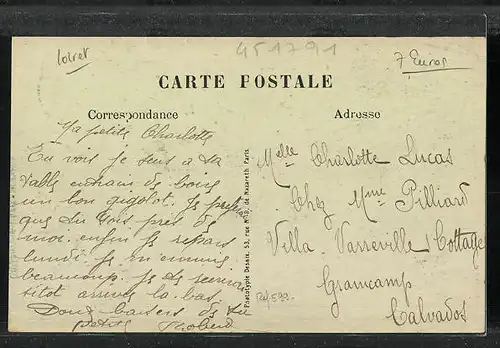 Loiret
451791
7 Euros
CARTE POSTALE
Correspondance
Adresse
Ma petite Charlotte
Tu vois je suis à la
table entrain de boire
un bon gigolot. Je
que tu sois près de
moi enfin je repars
lundi je m ennuie
beaucoup je
sitot arrivé la bas.
Doux baisers de ton
petit Robert
Phototypie Desaix, 53, rue N.-D. de Nazareth Paris
Melle Charlotte Lucas
Chez Mme Pilliard
Villa Varreville Cottage
Grancamp
Calvados